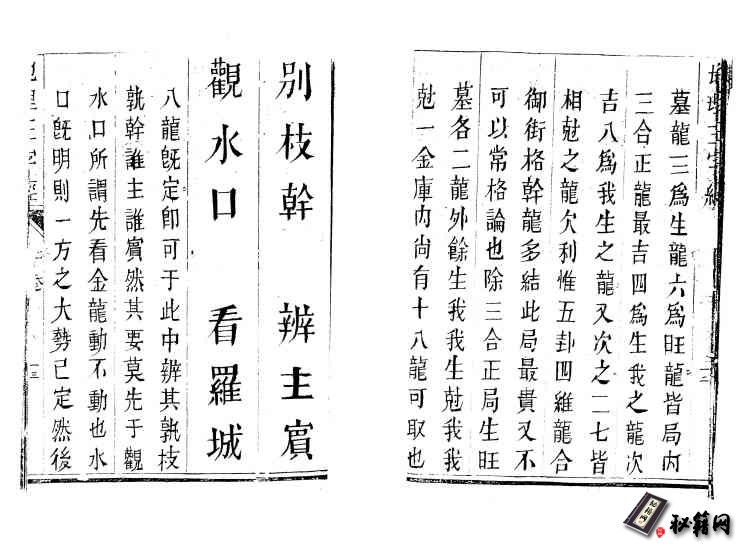 墓龍三爲生龍六爲旺龍皆局內
三合正龍最吉四爲生我之龍次
吉八爲我生之龍又次之二七皆
相尅之龍欠利惟五卦四維龍合
御街格幹龍多結此局最貴又不
可以常格論也除三合正局生旺
墓各二龍外餘生我我生尅我我
尅一金庫內尚有十八龍可取也
別枝幹 辨主賓
觀水口 看羅城
八龍旣定卽可于此中辨其孰枝
孰幹誰主誰賓然其要莫先于觀
水口所謂先看金龍動不動也水
口旣明則一方之大勢已定然後
十三
十三
秘籍网